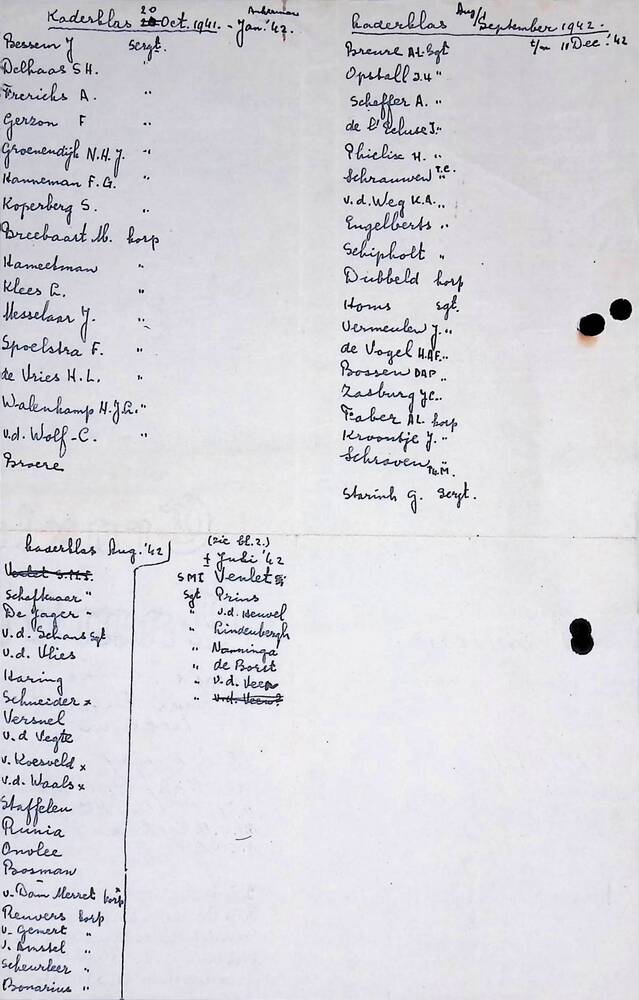 Kaderklas 20 Oct. 1941. - Jan. '42.
Bessem J Sergt.
Delhaas S H. "
Frerichs A. "
Gerzon F "
Groenendijk N.H.J. "
Hanneman F.G. "
Koperberg S. "
Breebaart M. korp
Hameetman "
Klees C. "
Messelaar J. "
Spoelstra F. "
de Vries H.L. "
Walenkamp H.J.C. "
v.d. Wolf - C. "
Broere
Kaderklas Aug/September 1942.
t/m 11 Dec. '42
Breure A.L. Sgt
Opstall J.H "
Scheffer A. "
de l'Ecluse J. "
Philise H. "
Schrauwen T.C. "
v.d. Weg K.A. "
Engelberts "
Schipholt "
Dubbeld korp
Homs Sgt.
Vermeulen J. "
de Vogel H.A.F. "
Bossen DAP "
Zasburg J.C. "
Faber A.L. korp
Kroontje J. "
Schroven Th.M. "
Starink G. Sergt.
Kaderklas Aug. '42
Schefknaar "
De Jager "
v.d. Schans Sgt
v.d. Vlies
Haring
Schneider x
Versnel
v.d Vegte
v. Koesveld x
v.d. Waals x
Staffelen
Runia
Onvlee
Bosman
v. Dam Merret korp
Reuvers korp
v. Gemert "
v. Amstel "
Scheurleer "
Bonarius "
(zie bl. 2.)
± Juli '42
SMI Venlet
Sgt Prins
" v.d. Heuvel
" Lindenbergh
" Nanninga
" de Borst
" v.d. Veen
" v.d. Veen?